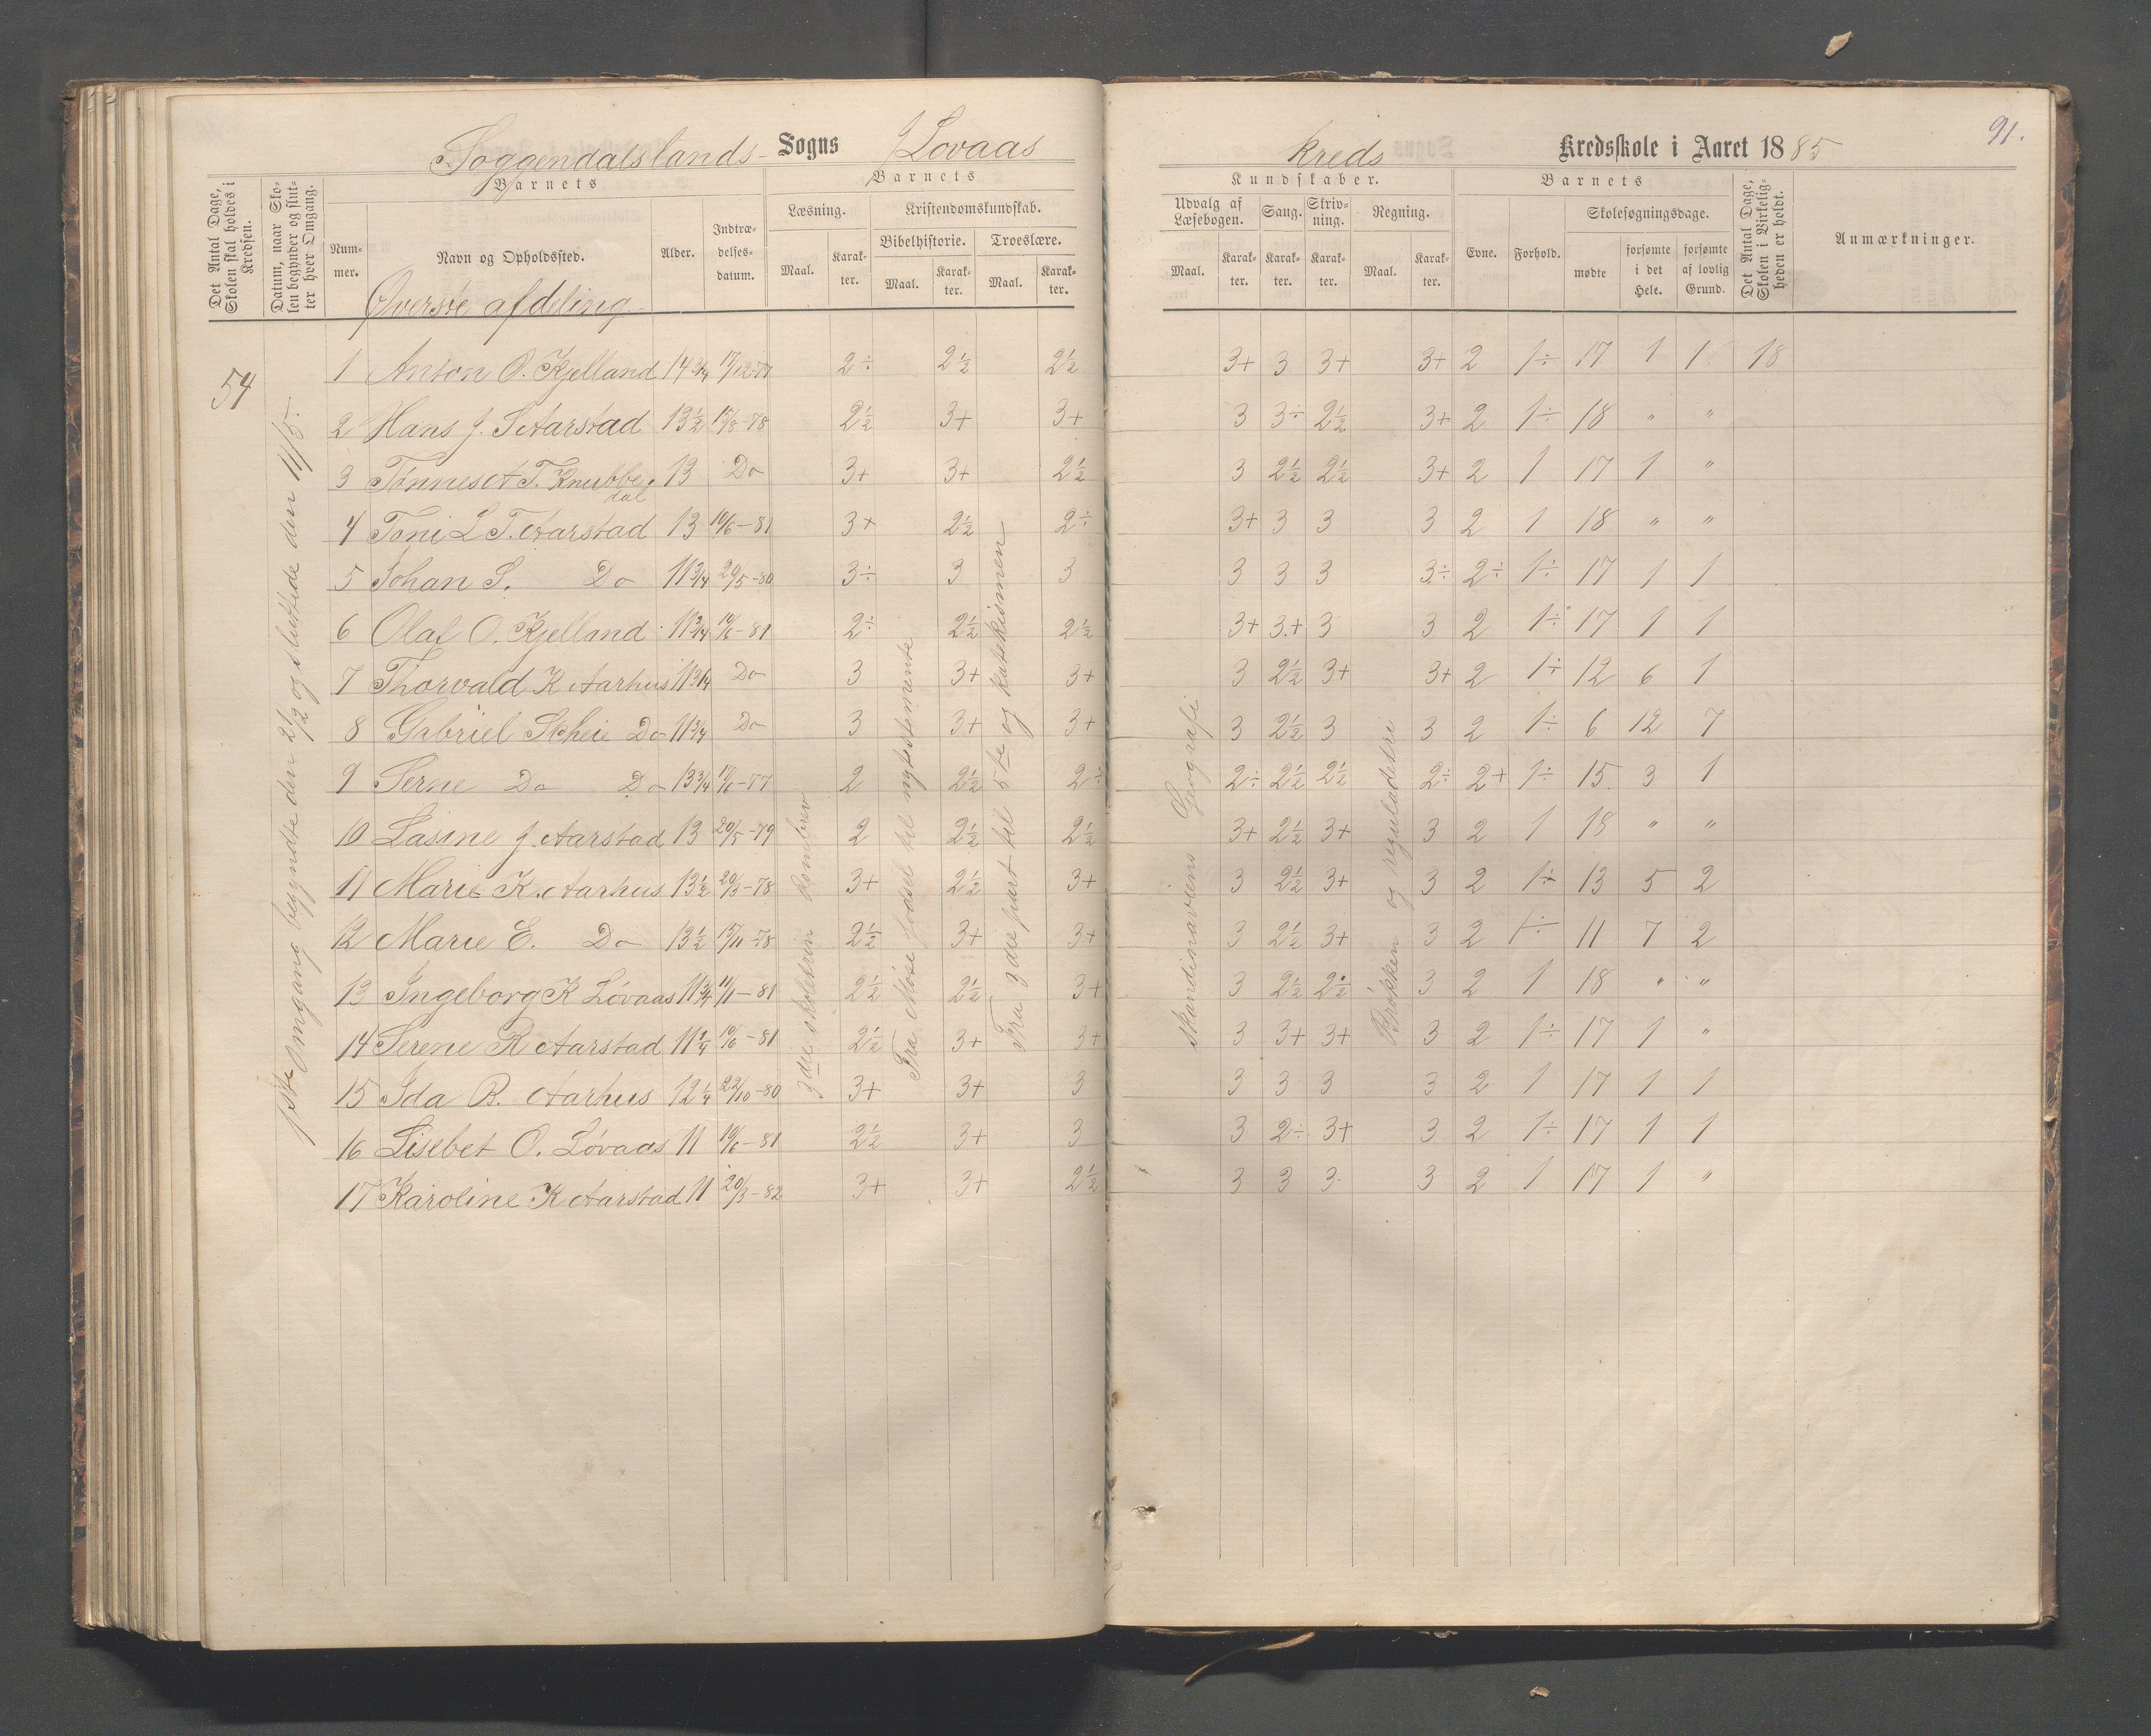 Soggendalslands Sogns Løvaas kreds Kredsskole i Aaret 1885
91.
Det Antal Dage, Skolen skal holdes i Kredsen.
Datum, naar Skolen begynder og slutter hver Omgang.
Barnets
Nummer.
Navn og Opholdssted.
Alder.
Indtrædelsesdatum.
Barnets
Læsning.
Kristendomskundskab.
Bibelhistorie.
Troeslære.
Maal.
Karakter.
Maal.
Karakter.
Maal.
Karakter.
Kundskaber.
Udvalg af Læsebogen.
Sang.
Skrivning.
Regning.
Maal.
Karakter.
Karakter.
Karakter.
Maal.
Karakter.
Barnets
Evne.
Forhold.
Skolesøgningsdage.
mødte
forsømte i det Hele.
forsømte af lovlig Grund.
Det Antal Dage, Skolen i Virkeligheden er holdt.
Anmærkninger.
Øverste afdeling
54
1ste Omgang begyndte den 21/2 og sluttede den 11/5.
3die skoletrin
Fra Mose fødsel til nytestemente
Fra 3die part til 5te og katekismen
Skandinaviens Geografi
Brøkken og reguladetri
1 Anton O. Kjelland 14 3/4 17/12-77 2÷ 2½ 2½ 3+ 3 3+ 3+ 2 1÷ 17 1 1 18
2 Hans J. S Aarstad 13½ 15/8-78 2½ 3+ 3+ 3 3÷ 2½ 3+ 2 1÷ 18 " "
3 Tønnes A T. Knubbedal 13 Do 3+ 3+ 2½ 3 2½ 2½ 3+ 2 1 17 1 "
4 Toni L T. Aarstad 13 10/6-81 3+ 2½ 2÷ 3+ 3 3 3 2 1 18 " "
5 Johan S. Do 11 3/4 20/5-80 3÷ 3 3 3 3 3 3÷ 2÷ 1÷ 17 1 1
6 Olaf O. Kjelland 11 3/4 10/6-81 2÷ 2½ 2½ 3+ 3+ 3 3 2 1÷ 17 1 1
7 Thorvald K Aarhus 11 3/4 Do 3 3+ 3+ 3 2½ 3+ 3+ 2 1÷ 12 6 1
8 Gabriel Skheie Do 11 3/4 Do 3 3+ 3+ 3 2½ 3 3 2 1÷ 6 12 7
9 Serne Do Do 13 3/4 17/6-77 2 2½ 2÷ 2÷ 2½ 2½ 2÷ 2+ 1÷ 15 3 1
10 Lasine J. Aarstad 13 20/5-79 2 2½ 2½ 3+ 2½ 3+ 3 2 1 18 " "
11 Marie K. Aarhus 13½ 20/3-78 3+ 2½ 3+ 3 2½ 3+ 3 2 1÷ 13 5 2
12 Marie E. Do 13½ 15/11-78 2½ 3+ 3+ 3 2½ 3+ 3 2 1÷ 11 7 2
13 Ingeborg K Løvaas 11 3/4 11/11-81 2½ 2½ 3+ 3 2½ 2½ 3 2 1 18 " "
14 Serene R Aarstad 11 1/4 10/6-81 2½ 3+ 3+ 3 3+ 3+ 3 2 1÷ 17 1 "
15 Ida B. Aarhus 12 1/4 22/10-80 3+ 3+ 3 3 3 3 3 2 1 17 1 1
16 Lisebet O. Løvaas 11 10/6-81 2½ 3+ 3 3 2÷ 3+ 3 2 1÷ 17 1 1
17 Karoline K Aarstad 11 20/3-82 3+ 3+ 2½ 3 3 3 3 2 1 17 1 "